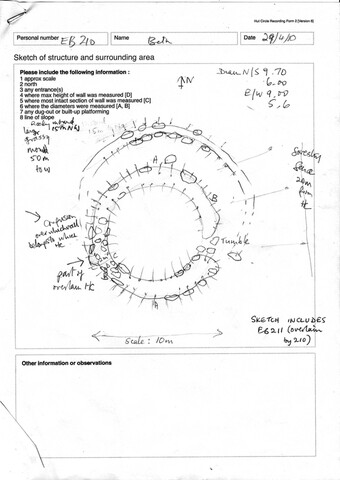 Hut Circle Recording Form 2 [Version 6]
Personal number EB 210 Name Beth Date 29/4/10
Sketch of structure and surrounding area
Please include the following information :
1 approx scale
2 north
3 any entrance(s)
4 where max height of wall was measured [D]
5 where most intact section of wall was measured [C]
6 where the diameters were measured [A, B]
7 any dug-out or built-up platforming
8 line of slope
N
N/S 9.70
6.00
E/W 9.00
5.6
Rocky
15m N
large
mound
50m
to W
15m
A
B
C
A
Confusion
over which wall
belongs to which
HC
part of
overlain HC
Tumble
fence
20m
from
HC
Scale : 10m
SKETCH INCLUDES
EB211 (overlain
by 210)
Other information or observations